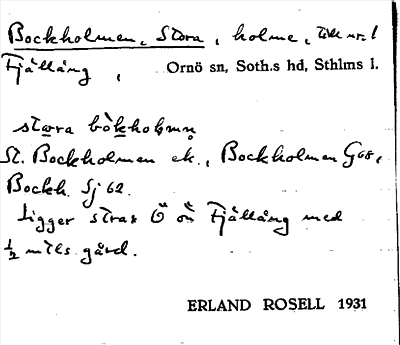 Bockholmen, Stora, holme, till nr. 1
Fjällång, Ornö sn, Soth.s hd, Sthlms l.
stora bòkholmən
St. Bockholmen ek., Bockholmen G68,
Bockh. Sj 62.
Ligger strax Ö om Fjällång med
½ mtls gård.
ERLAND ROSELL 1931